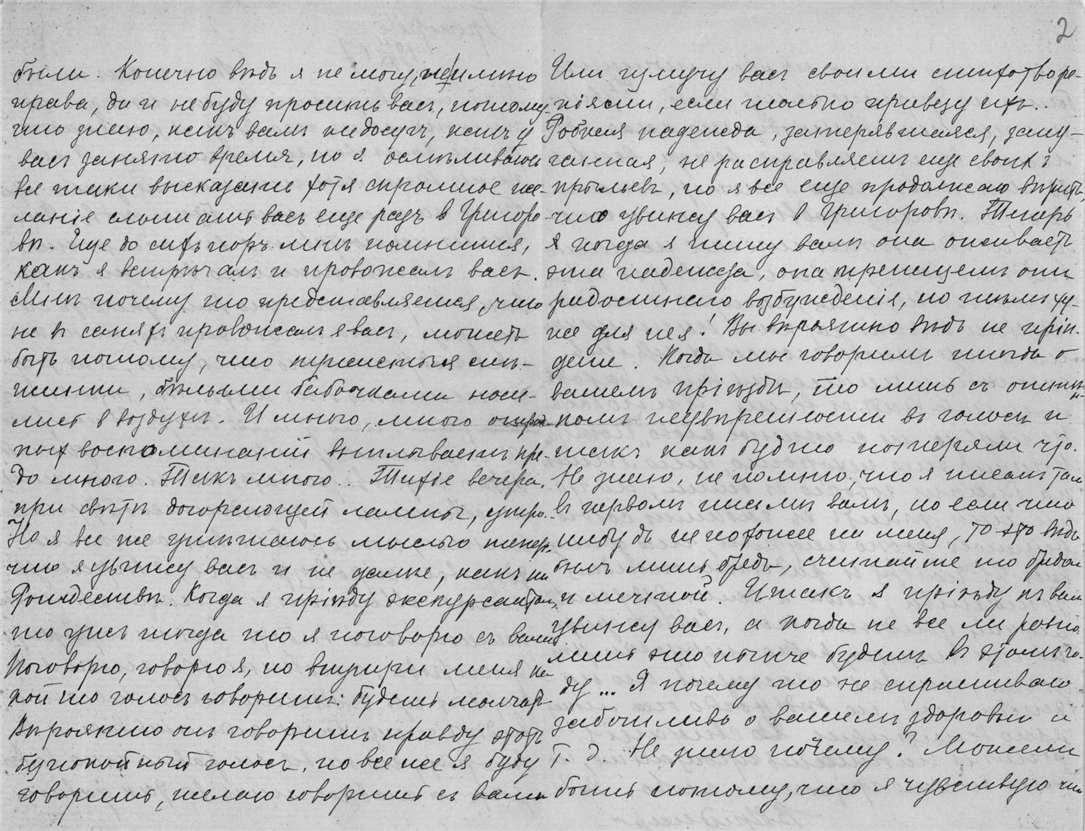 2
были. Конечно вѣдь я не могу, не имѣю
права, да и не буду просить васъ, потому
что знаю, какъ вамъ недосугъ, какъ у
васъ занято время, но я осмѣливаюсь
все таки высказать хотя скромное же-
ланіе слышать васъ еще разъ в Григоро-
вѣ. Еще до сихъ поръ мнѣ помнится,
какъ я встрѣчалъ и провожалъ васъ.
Мнѣ почему то представляется, что
не въ саняхъ провожалъ я васъ, можетъ
быть потому, что пушистыя сне-
жинки, бѣлыми бабочками носи-
лись в воздухѣ. И много, много
ных воспоминаній выплываетъ пре-
до мною. Такъ много.. Тихіе вечера,
при свѣтѣ догорающей лампы, утро.
Но я все же утѣшаюсь мыслью теперь,
что я увижу васъ и не далѣе, какъ на
Рождествѣ. Когда я пріѣду экскурсантомъ,
то ужъ тогда то я поговорю съ вами
Поговорю, говорю я, но внутри меня ка-
кой то голосъ говоритъ: будешь молчать.
Вѣроятно онъ говоритъ правду этотъ
безпокойный голосъ, но все же я буду
говорить, желаю говорить съ вами
Или измучу васъ своими стихотворе-
ніями, если только привезу ихъ..
Робкая надежда, затерявшаяся, запу-
ганная, не расправляетъ еще своихъ
крыльевъ, но я все еще продолжаю вѣрить,
что увижу васъ в Григоровѣ. Теперь
я когда я пишу вамъ она оживаетъ
эта надежда, она трепещетъ отъ
радостнаго возбужденія, но
же для нея! Вы вѣроятно вѣдь не пріѣ-
дете. Когда мы говоримъ иногда о
вашемъ пріѣздѣ, то лишь съ оттѣн-
комъ неувѣренности въ голосѣ и
такъ какъ будто потеряли что.
Не знаю, не помню, что я писалъ там
въ первомъ письмѣ вамъ, но если что
нибудь непохожее на меня, то это вѣдь
былъ лишь бредъ, считайте то бредом
и мечтой. Итакъ я пріѣду къ вамъ
увижу васъ, а когда не все ли равно
лишь это нынче будетъ въ этомъ го-
ду... Я почему то не спрашиваю
заботливо о вашемъ здоровьи и
т. д. Не знаю почему? Можетъ
быть потому, что я чувствую что